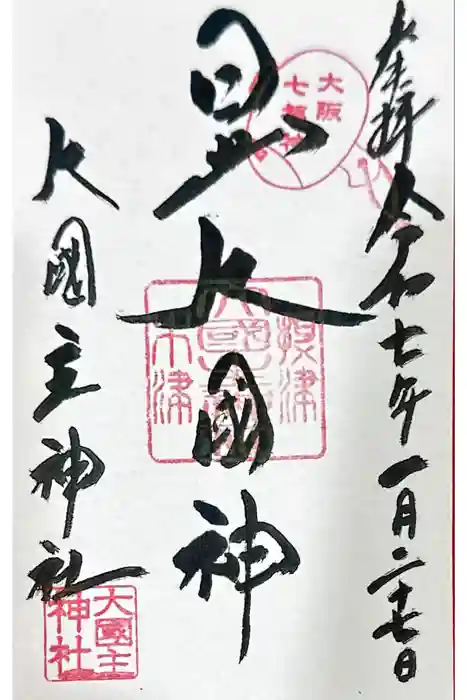 奉拝
令和七年一月二十七日
大阪
七福神
大国神
摂津
木津
大國主神社
大國主
神社